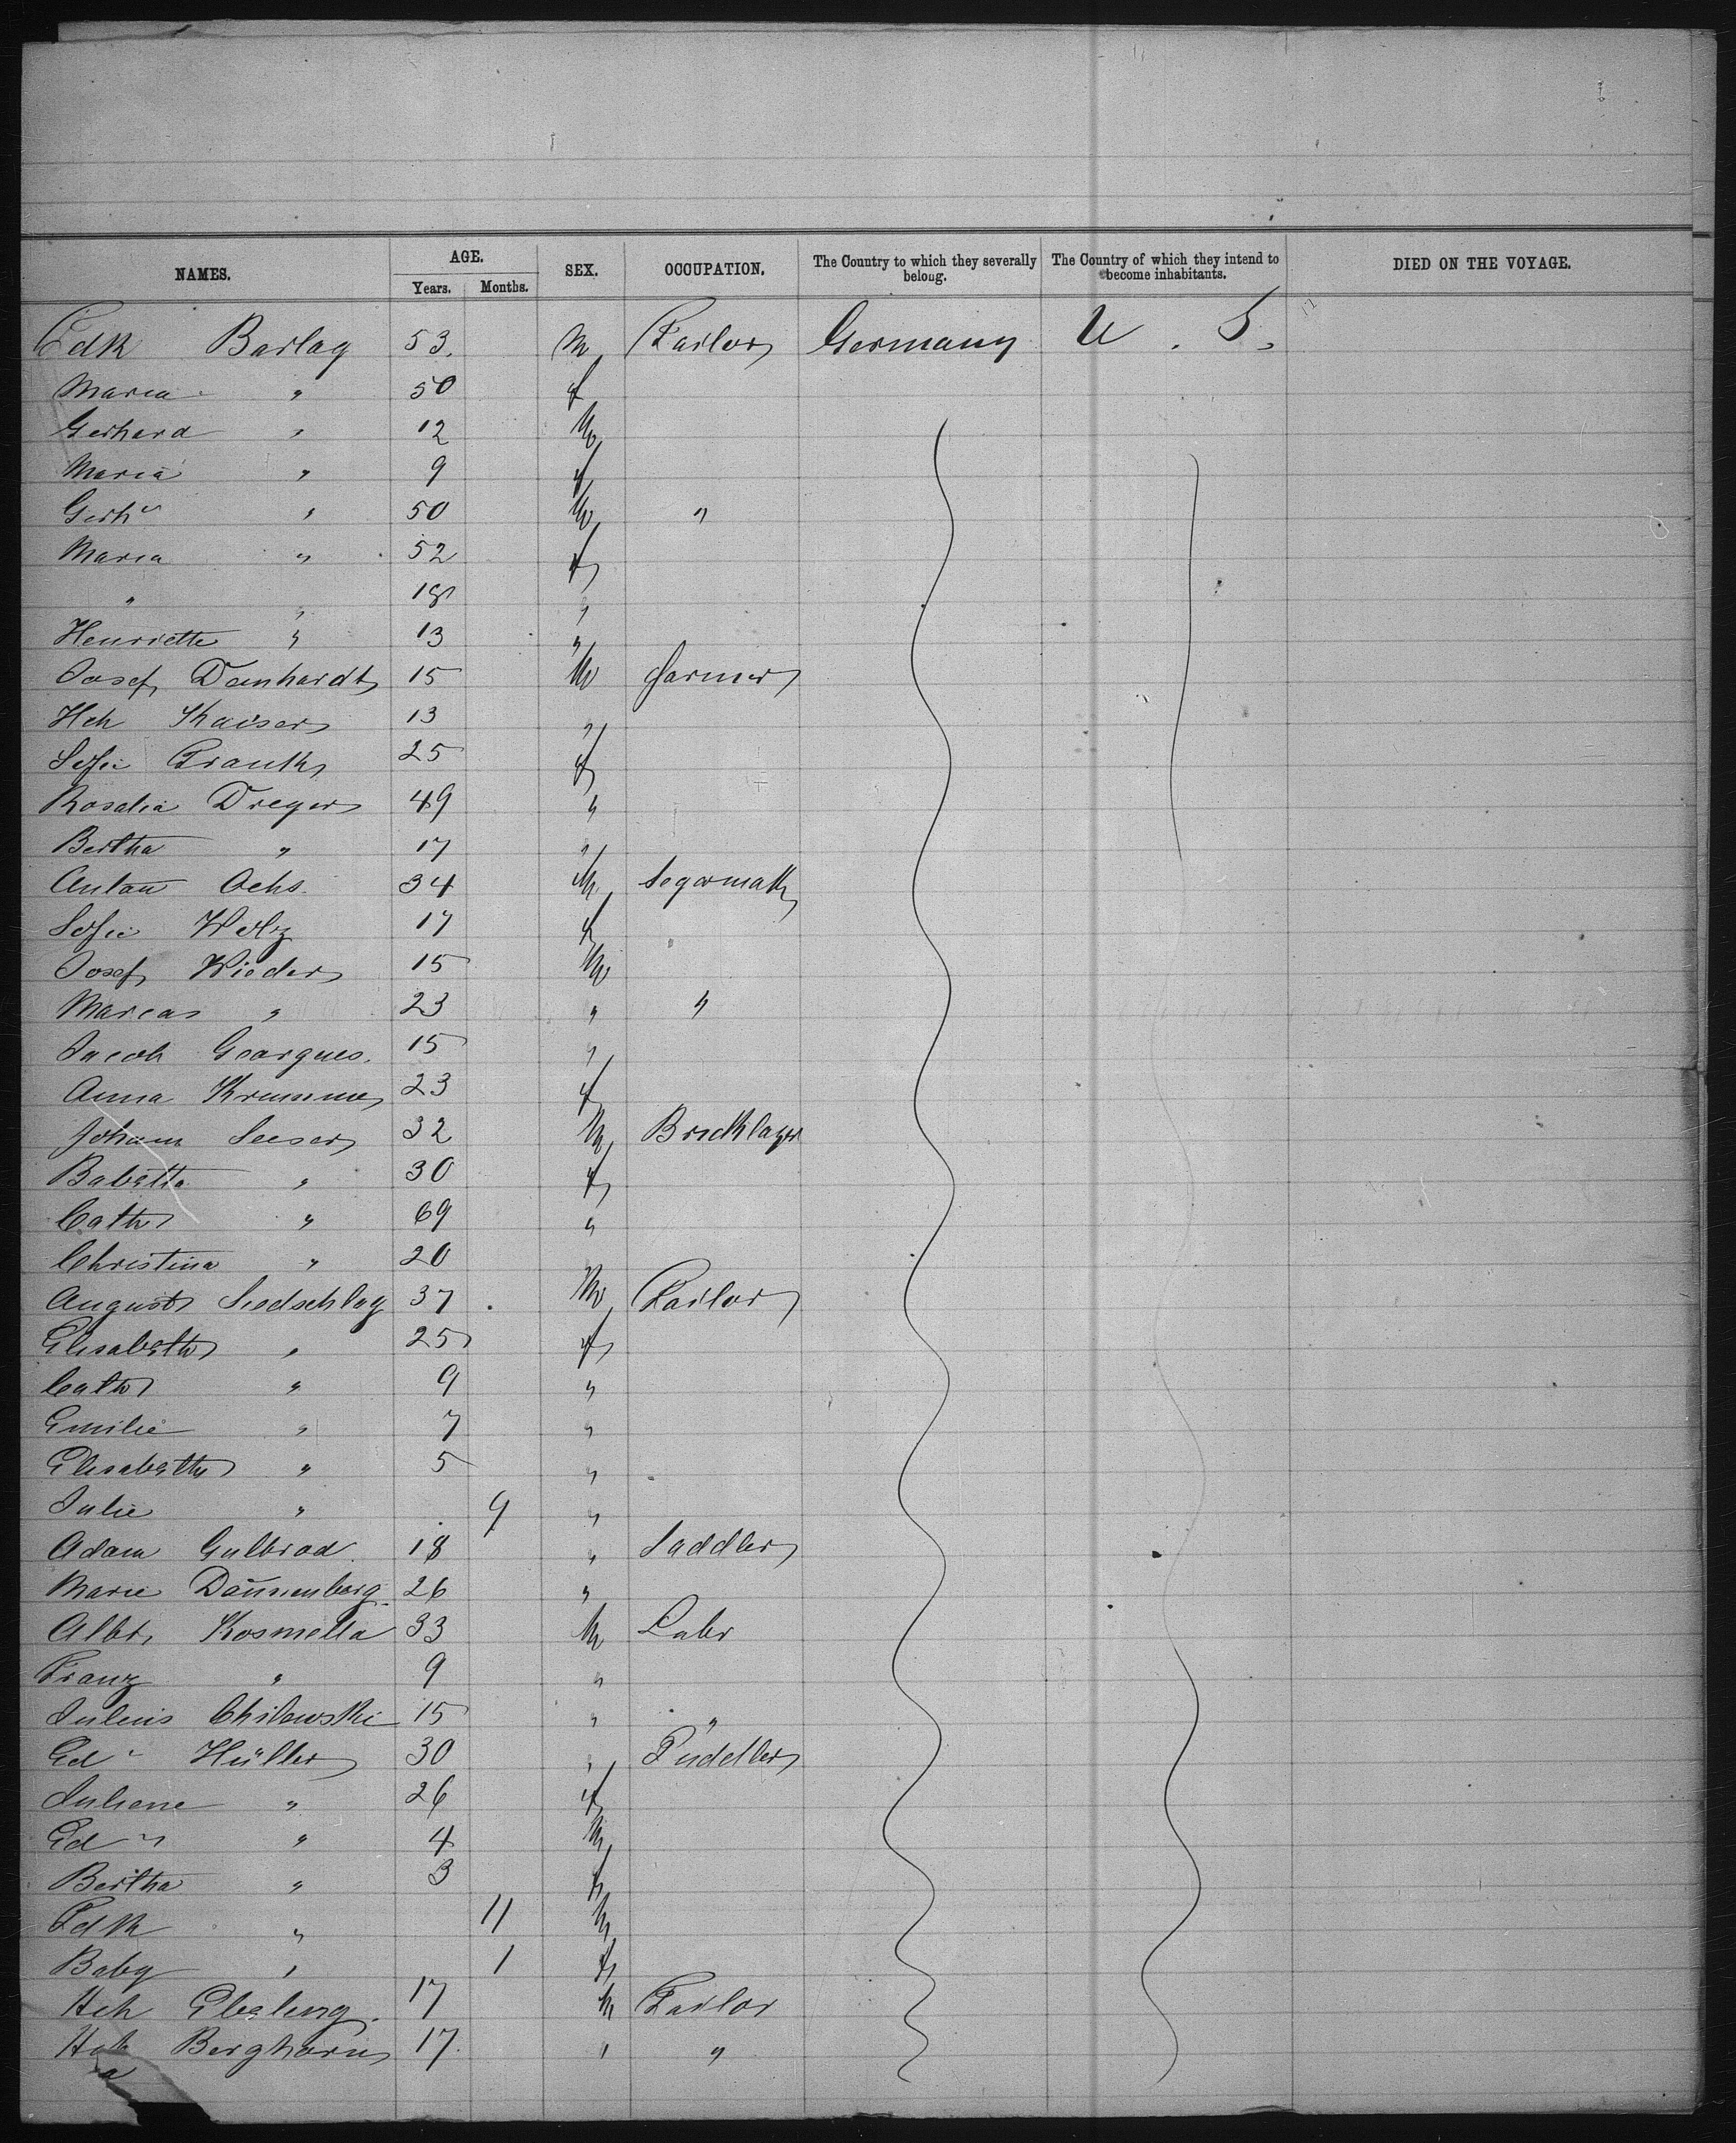 NAMES. AGE. Years. Months. SEX. OCCUPATION. The Country to which they severally belong. The Country of which they intend to become inhabitants. DIED ON THE VOYAGE.
Fdk Barlag 53. M Tailor Germany U. S.
Maria " 50 f
Gerhard " 12 M
Maria " 9 f
Gerh " 50 M "
Maria " 52 f
" " 18 "
Henriette " 13 "
Josef Denhardt 15 M farmer
Hch Kaiser 13 "
Sofie Frank 25 f
Rosalia Dreger 49 "
Bertha " 17 "
Anton Ochs. 34 M Segarmak
Sofie Welz 17 f
Josef Wieder 15 M
Marcas " 23 " "
Jacob Geargues. 15 "
Anna Krumme 23 f
Johann Seeser 32 M Bricklayer
Babette " 30 f
Cath " 69 "
Christina " 20
August Siedschlag 37 M Tailor
Elisabeth " 25 f
Cath " 9 "
Emilie " 7 "
Elisabeth " 5 "
Julie " 9 "
Adam Gulbrod. 18 " Saddler
Marie Dannenberg. 26 "
Albt Kosmella 33 M Labr
Franz " 9 "
Julius Chilewski 15 " "
Ed Hüller 30 " Puddler
Juliane " 26 f
Ed " 4 M
Bertha " 3 f
Fdk " 11 M
Baby " 1 f
Hch Ebeling. 17 M Tailor
Hch Berghorn 17. " "